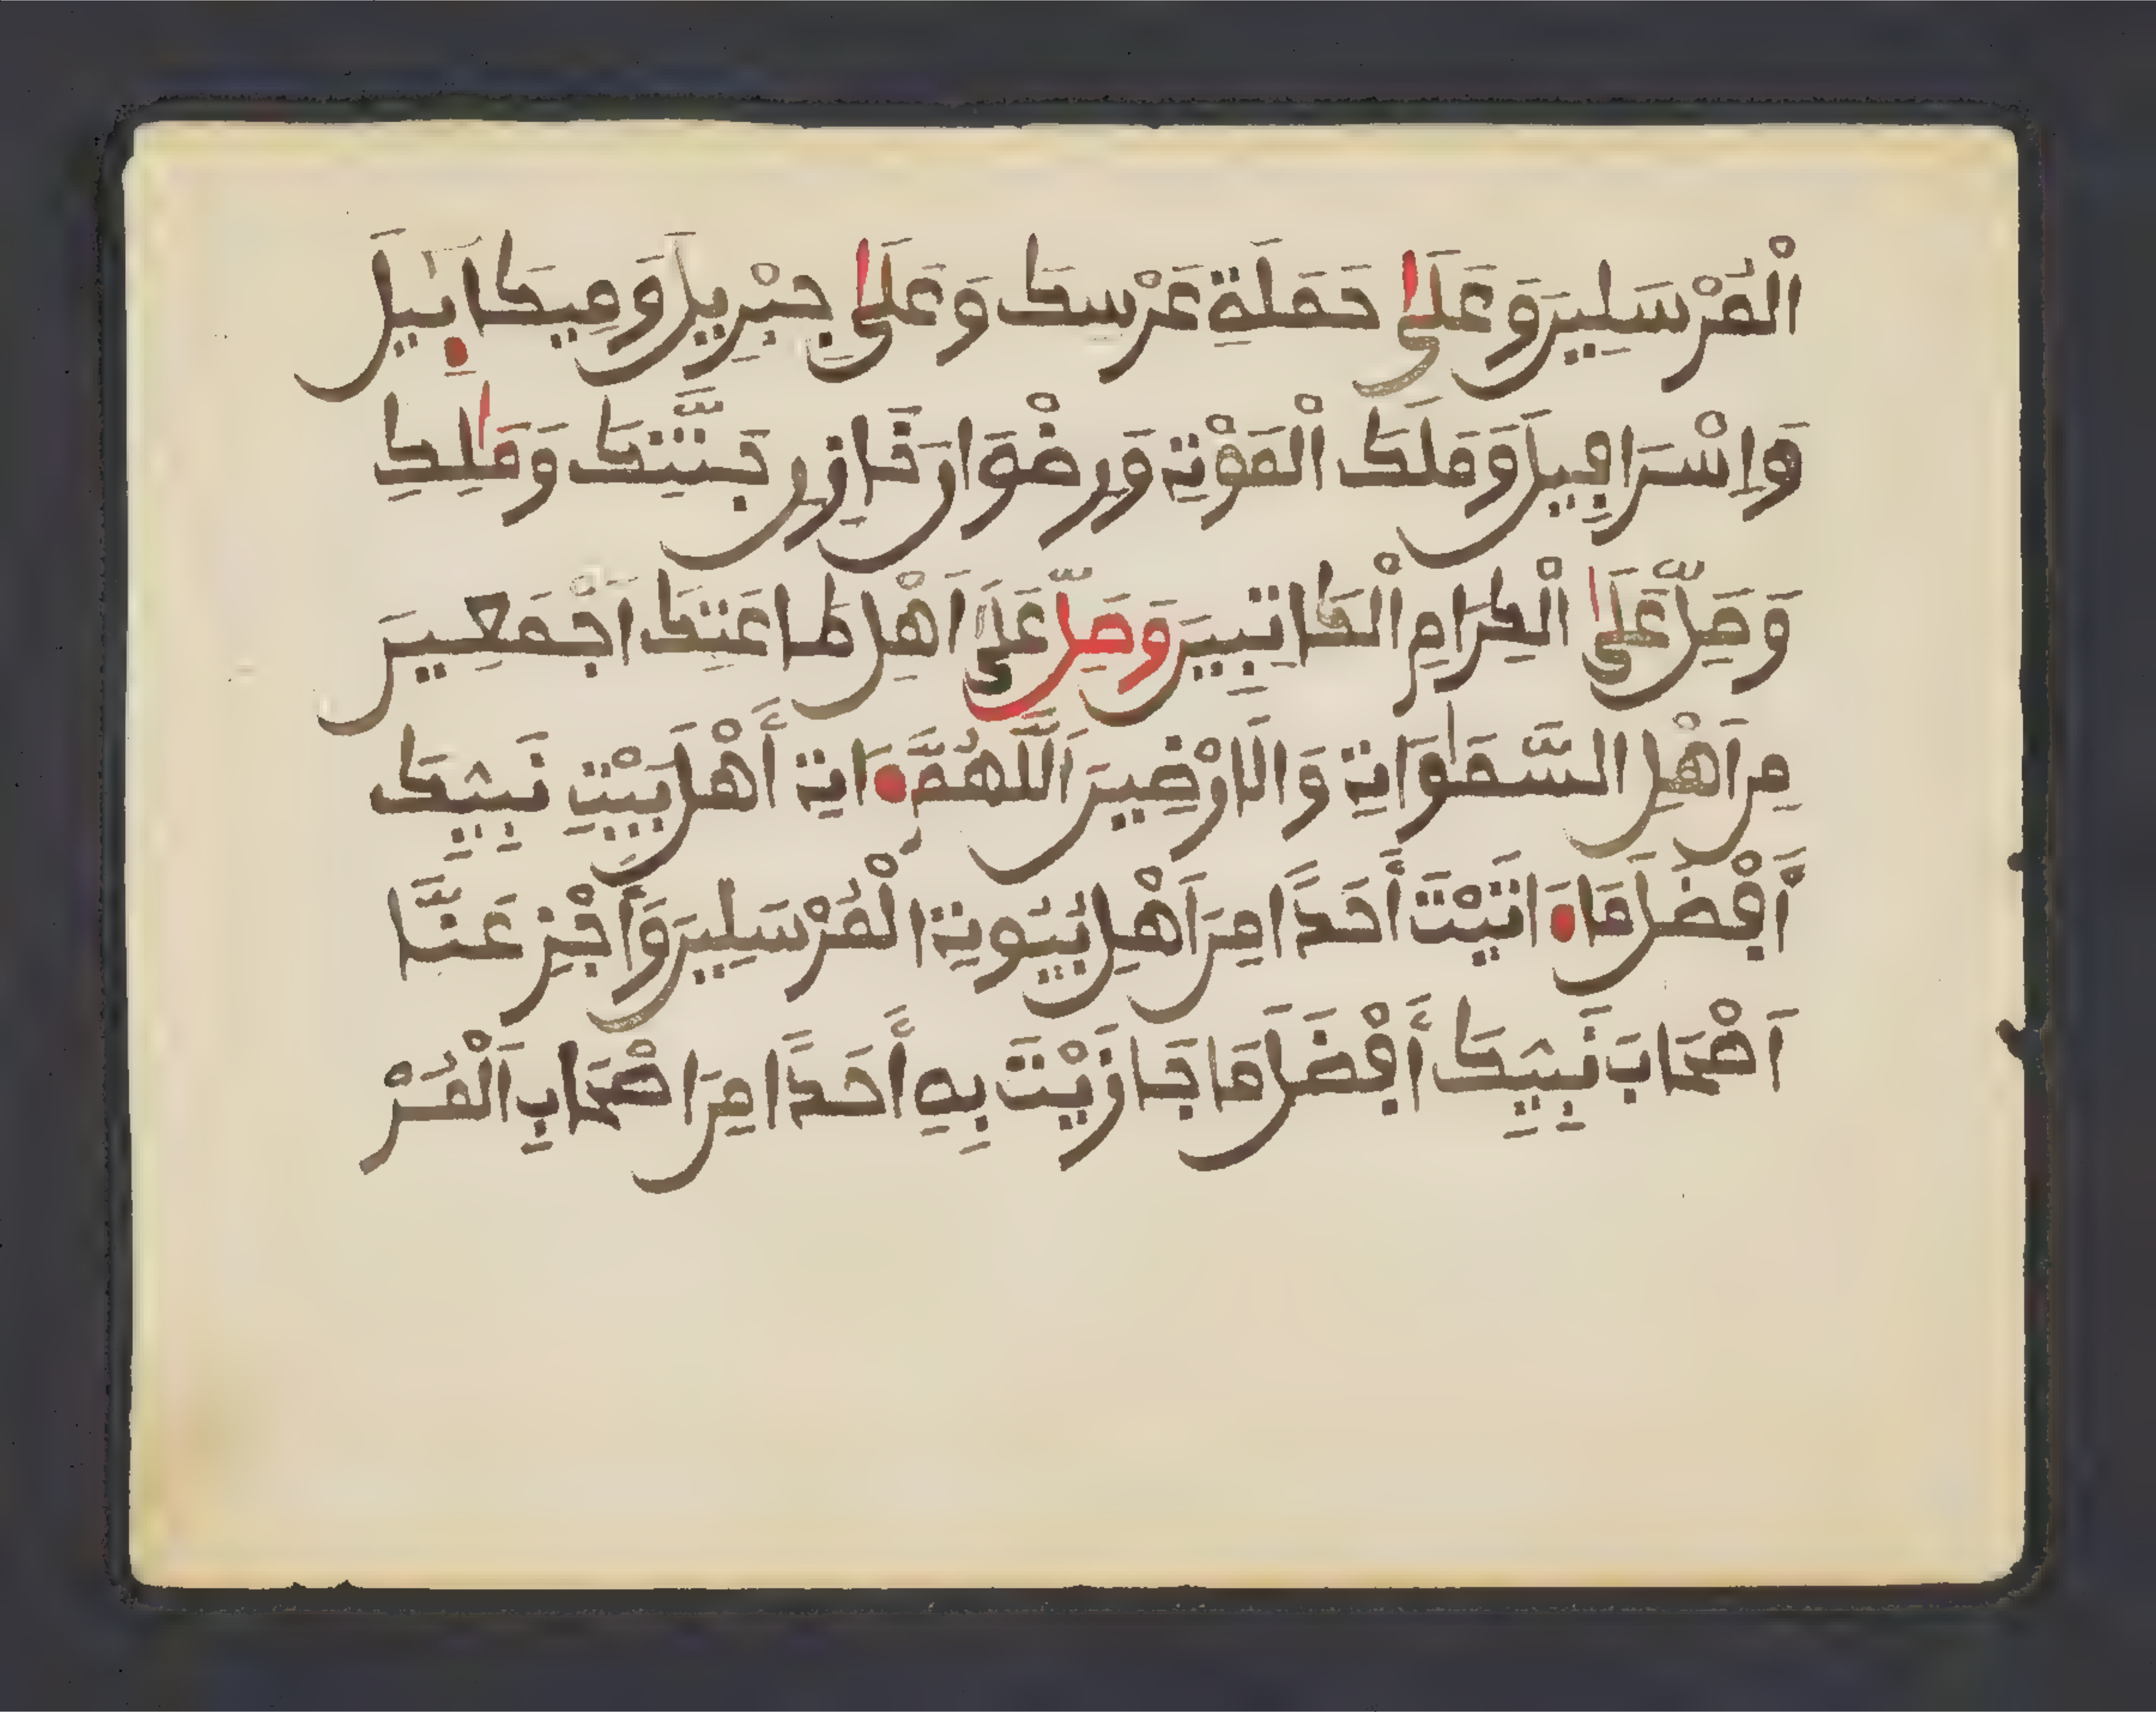 الْمُرْسَلِينَ وَعَلَىٰ حَمَلَةِ عَرْشِكَ وَعَلَىٰ جِبْرِيلَ وَمِيكَائِيلَ
وَإِسْرَافِيلَ وَمَلَكِ الْمَوْتِ وَرِضْوَانَ خَازِنِ جَنَّتِكَ وَمَٰلِكِ
وَصَلِّ عَلَى الْكِرَامِ الْكَاتِبِينَ وَصَلِّ عَلَىٰ أَهْلِ طَاعَتِكَ أَجْمَعِينَ
مِنَ اهْلِ السَّمَٰوَاتِ وَالَارْضِينَ اَللَّهُمَّ ءَاتِ أَهْلَ بَيْتِ نَبِيِّكَ
أَفْضَلَ مَا ءَاتَيْتَ أَحَدًا مِنَ اَهْلِ بُيُوتِ الْمُرْسَلِينَ وَأَجْزِ عَنَّا
اَصْحَابَ نَبِيِّكَ أَفْضَلَ مَا جَازَيْتَ بِهِ أَحَدًا مِنَ اصْحَابِ اَلْمُرْ